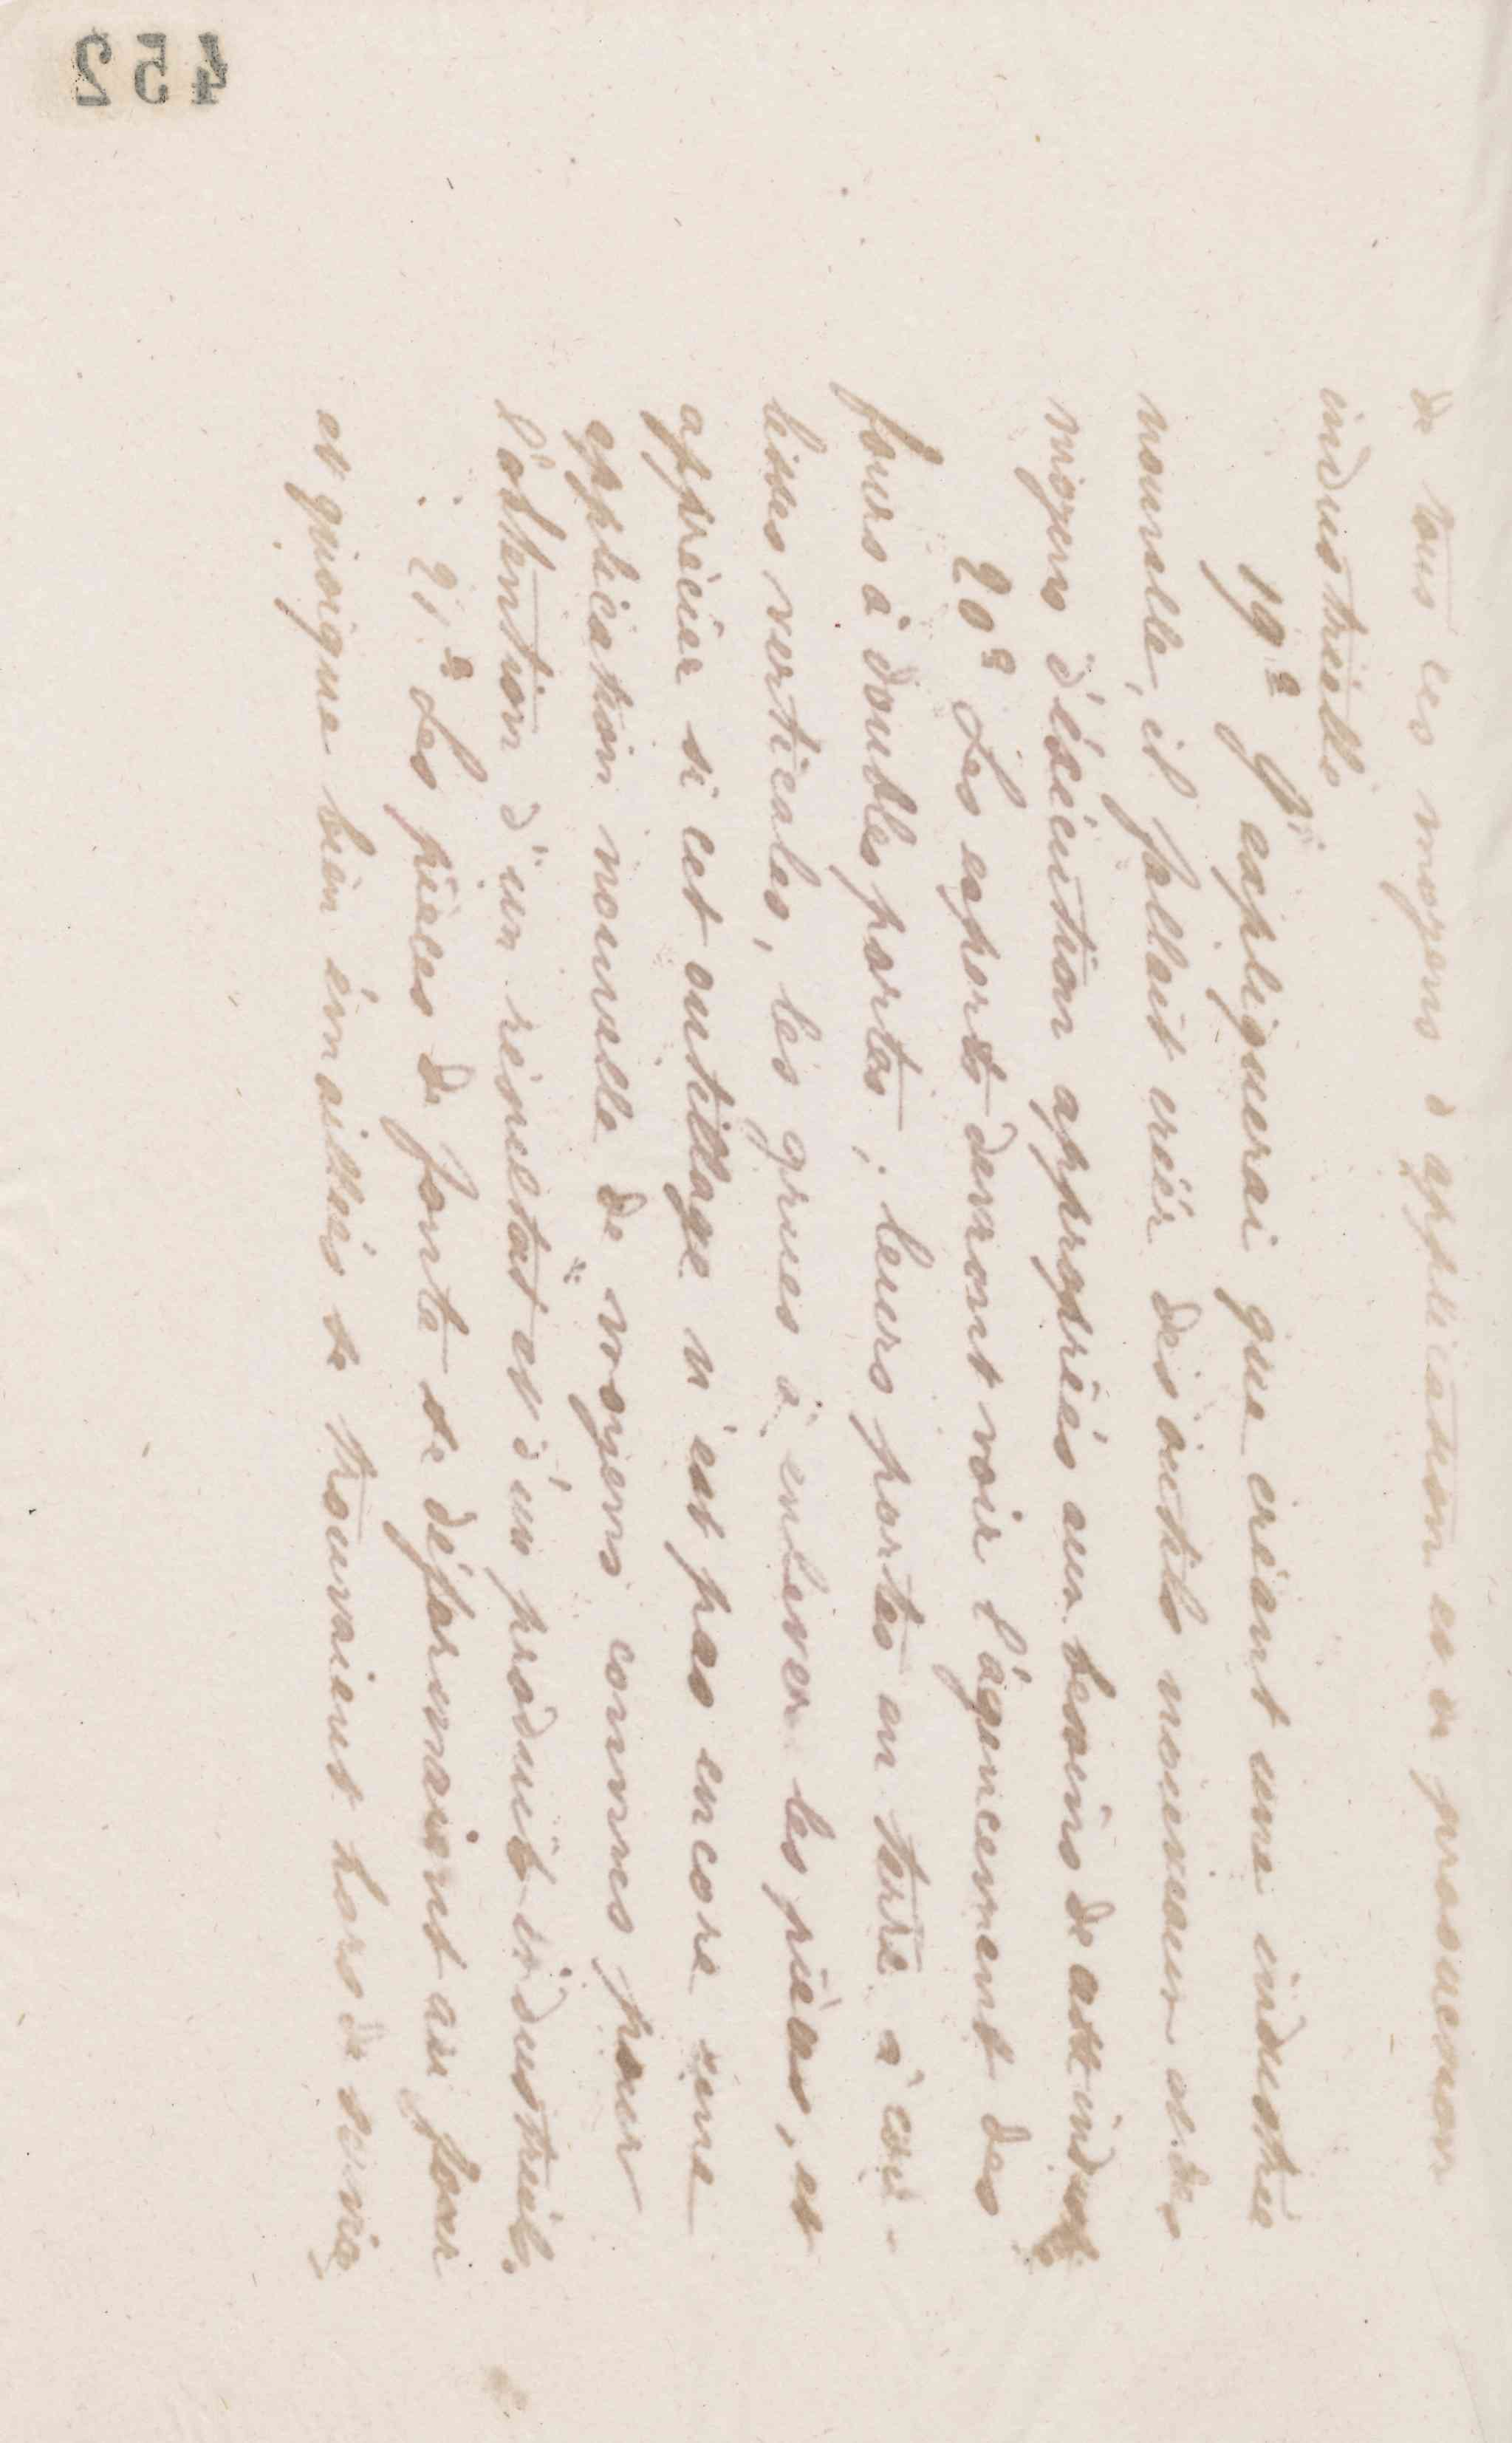 de tous ces moyens d'application et de production
industriels
19º J'expliquerai que créant une industrie
nouvelle, il fallait créer des outils nouveaux et des
moyens d'éxécution appropriés aux besoins de cette industrie.
20º Les experts devront voir l'agencement des
fours à doubles portes ; leurs portes en terre à cou-
lisses verticales, les grues à enlever les pièces, et
apprécier si cet outillage n'est pas encore une
application nouvelle de moyens connus pour
l'obtention d'un résultat et d'un produit industriels.
21º Les pièces de fonte se déformaient au four
et quoique bien émaillés se trouvaient hors de service
452